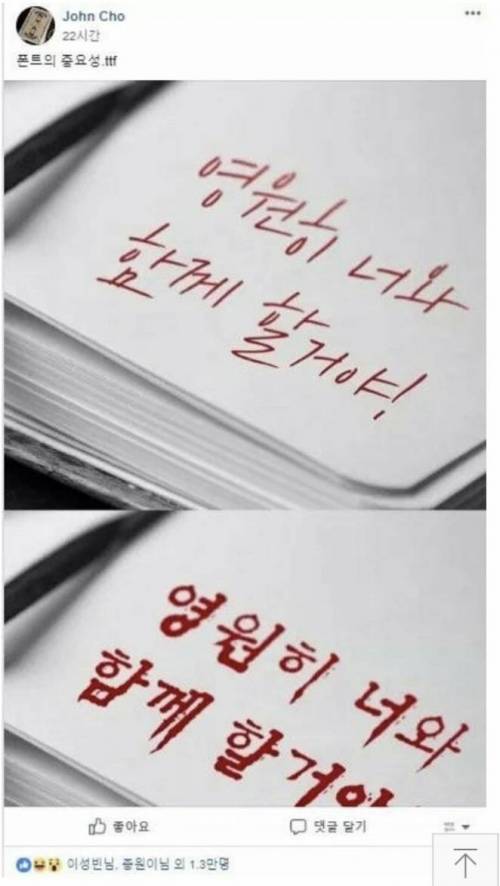 John Cho
22시간
폰트의 중요성.ttf
영원히 너와
함께 할거야!
영원히 너와
함께 할거야
좋아요
댓글 달기
이성빈님, 종원이님 외 1.3만명